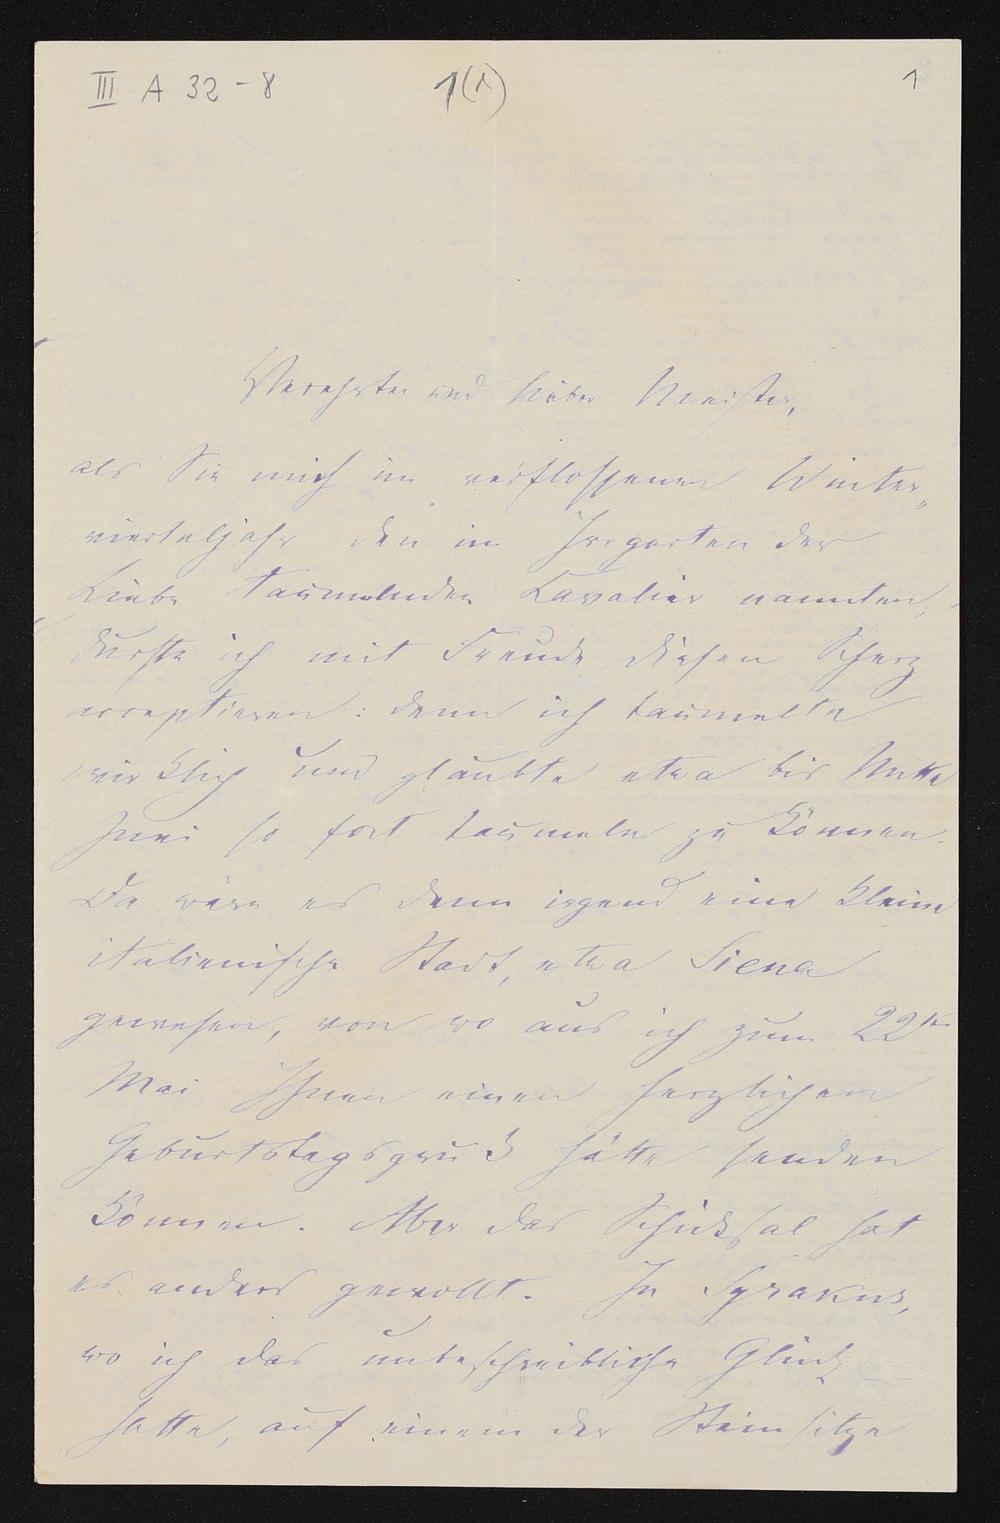 III A 32-8 1(1) 1
Verehrter und lieber Meister,
als Sie mich im verflossenen Winter„
vierteljahr den im Irrgarten der
Liebe taumelnden Cavalier nannten,
durfte ich mit Freude diesen Scherz
acceptieren: denn ich taumelte
wirklich und glaubte etwa bis Mitte
Juni so fort taumeln zu können.
Da wäre es denn irgend eine kleine
italienische Stadt, etwa Siena
gewesen, von wo aus ich zum 22ten
Mai Ihnen einen herzlichen
Geburtstagsgruß hätte senden
können. Aber das Schicksal hat
es anders gewollt. In Syrakus,
wo ich das unbeschreibliche Glück
hatte, auf einem der Steinsitze